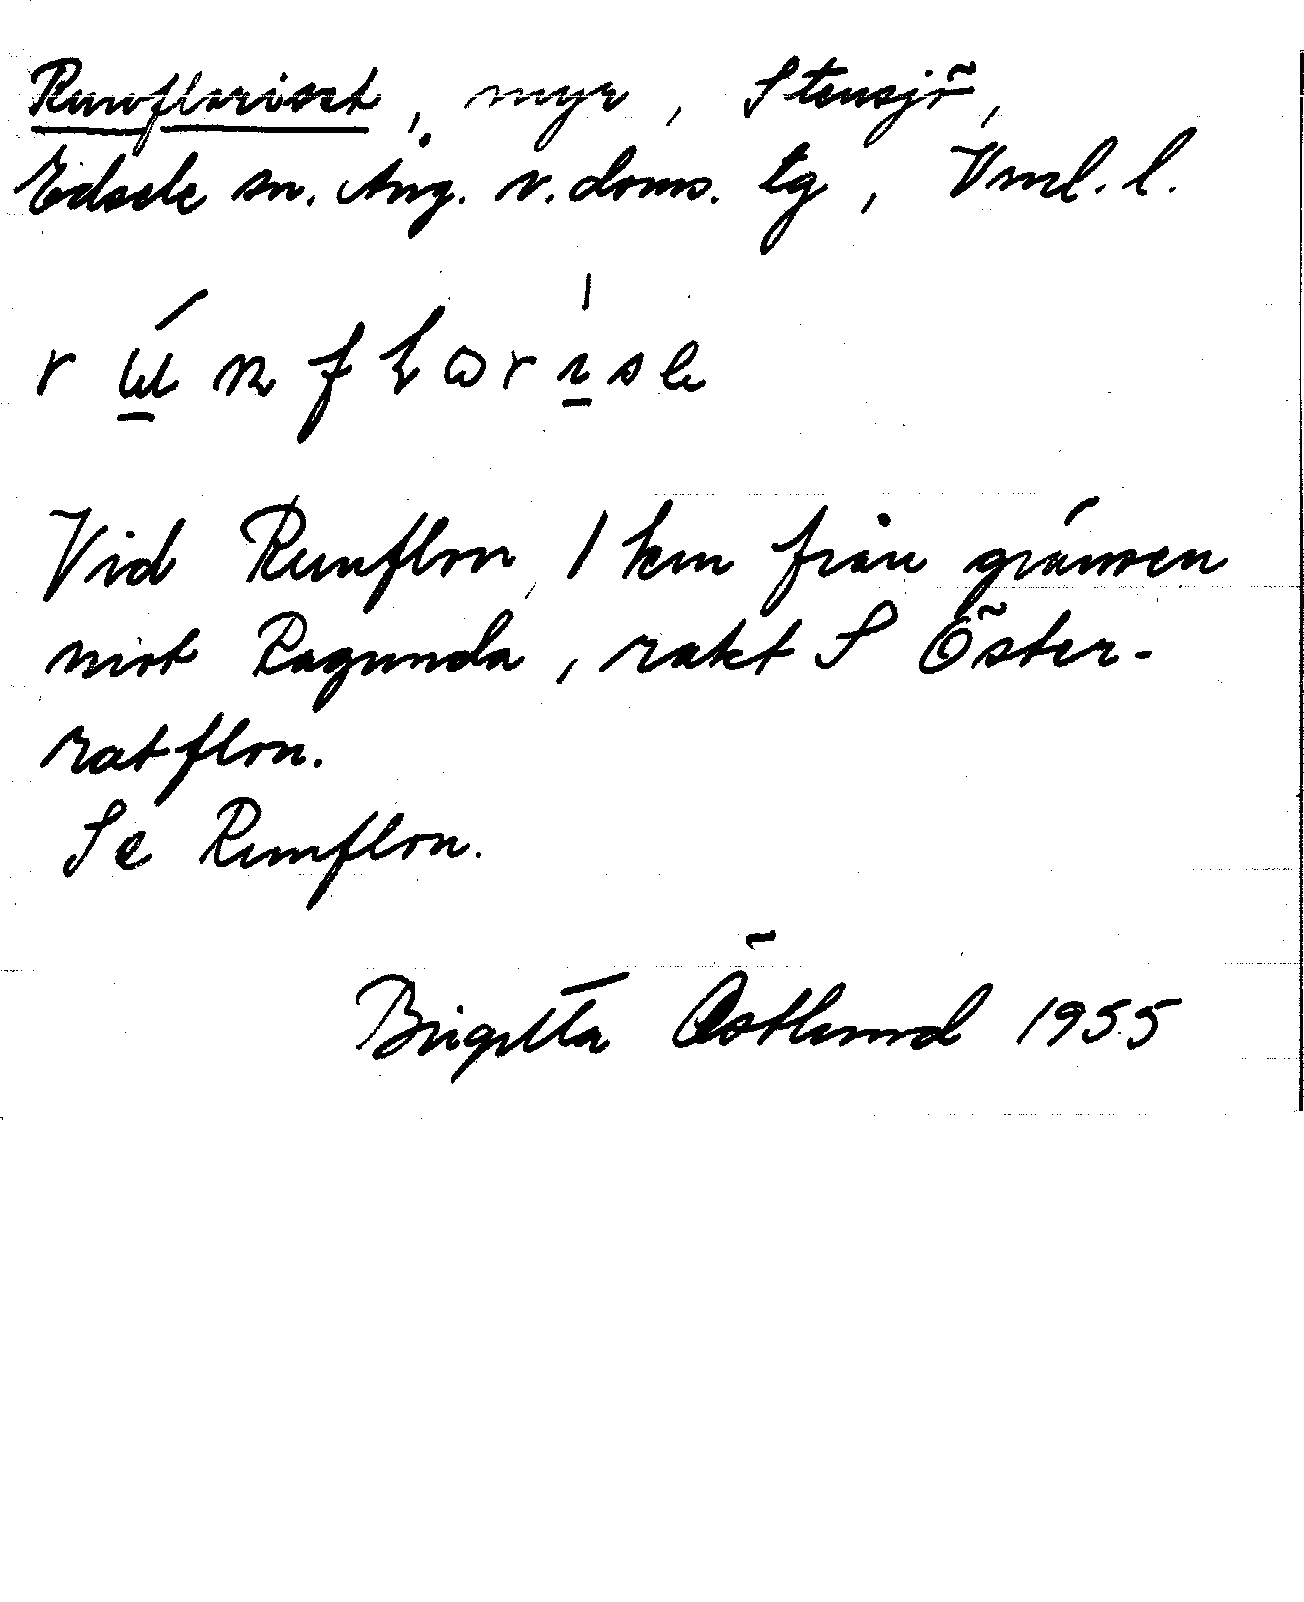 Runfloriset, myr, Stensjö,
Edsele sn. Ång. v. doms. tg, Vml. l.
Vid Runflon, 1 km från gränsen
mot Ragunda, rakt S Öster-
ratflon.
Se Runflon.
Birgitta Östlund 1955